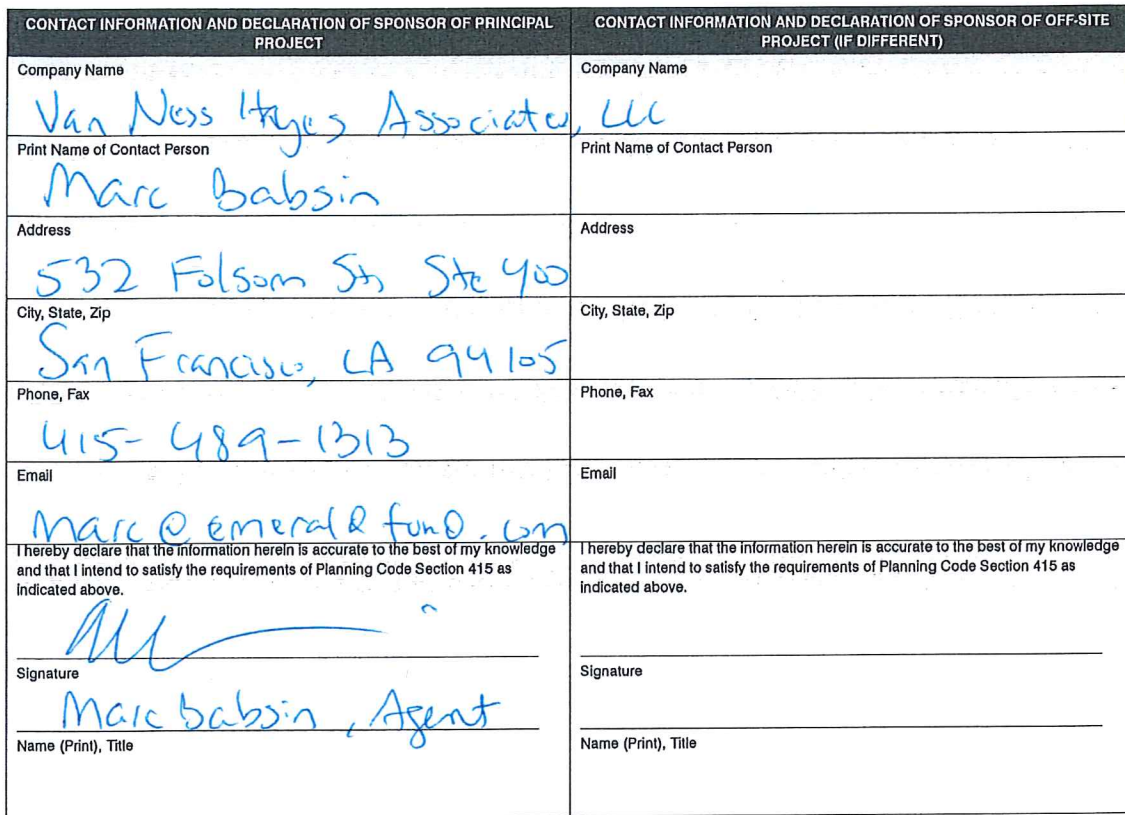 CONTACT INFORMATION AND DECLARATION OF SPONSOR OF PRINCIPAL
PROJECT
Company Name
Van Ness Hayes Associates, LLC
Print Name of Contact Person
Marc Babsin
Address
532 Folsom St, Ste 400
City, State, Zip
San Francisco, CA 94105
Phone, Fax
415-489-1313
Email
marc@emeraldfund.com
I hereby declare that the information herein is accurate to the best of my knowledge
and that I intend to satisfy the requirements of Planning Code Section 415 as
indicated above.
Signature
Marc Babsin, Agent
Name (Print), Title
CONTACT INFORMATION AND DECLARATION OF SPONSOR OF OFF-SITE
PROJECT (IF DIFFERENT)
Company Name
Print Name of Contact Person
Address
City, State, Zip
Phone, Fax
Email
I hereby declare that the information herein is accurate to the best of my knowledge
and that I intend to satisfy the requirements of Planning Code Section 415 as
indicated above.
Signature
Name (Print), Title